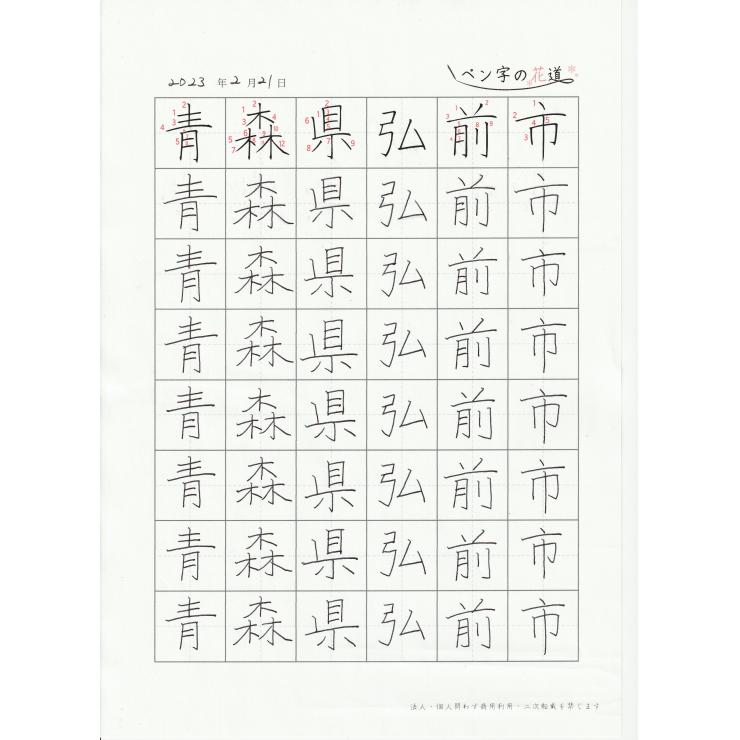 2023年2月21日
ペン字の花道
青森県弘前市
青森県弘前市
青森県弘前市
青森県弘前市
青森県弘前市
青森県弘前市
青森県弘前市
青森県弘前市
法人・個人問わず商用利用・二次転載を禁じます